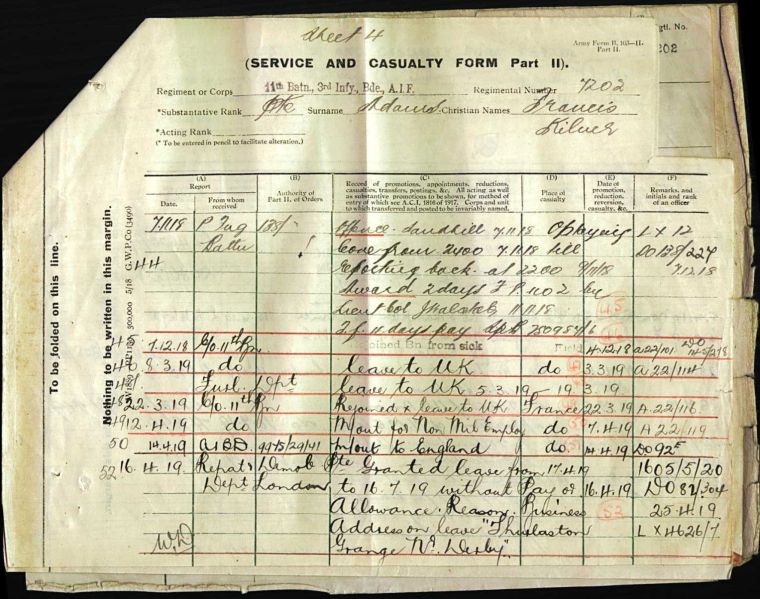 Sheet 4
Army Form B. 103—II.
Part II.
(SERVICE AND CASUALTY FORM Part II).
Regtl. No.
202
Regiment or Corps 11th Batn, 3rd Infy, Bde, A.I.F. Regimental Number 7202
*Substantive Rank Pte Surname Adams Christian Names Francis
*Acting Rank Kilner
(* To be entered in pencil to facilitate alteration.)
To be folded on this line.
Nothing to be written in this margin.
500,000 5/18 G.W.P.Co (3490)
(A) Report
Date. From whom received
(B) Authority of Part II. of Orders
(C) Record of promotions, appointments, reductions, casualties, transfers, postings, &c. All acting as well as substantive promotions to be shown, for method of entry of which see A.C.I. 1816 of 1917. Corps and unit to which transferred and posted to be invariably named.
(D) Place of casualty
(E) Date of promotion, reduction, reversion, casualty, &c.
(F) Remarks, and initials and rank of an officer
7.11.18 138/ Offence. 7.11.18 L X 12
from 2400 7.11.18 till DO138/227
44 Reporting back at 2200 7.12.18
Award 2 days F P no 2 by
Lieut Col 11.11.18 45
T.f. 11 days pay
45 7.12.18 C/O. 11th Bn Rejoined Bn from sick Field 4.12.18
46 8.3.19 do leave to UK do 3.3.19 A 22/114
Dept leave to UK 5.3.19 3.19.
22.3.19 C/O. 11th Bn Rejoined x leave to UK France 22.3.19 A.22/116
49 12.4.19 do M/out for Non Mil Employ do 7.4.19 A 22/119
50 14.4.19 AIBD 99-5/29/41 m/out to England do 14.4.19 DO92E
52 16.4.19. Repat & Demob Pte Granted leave from 17.4.19 1605/5/20
Dept London to 16.7.19 without Pay or 16.4.19 DO 82/304
Allowance. Reason. Business 52 25.4.19.
Address on leave "Thurlaston L X 4626/7
Grange Nr. Derby".